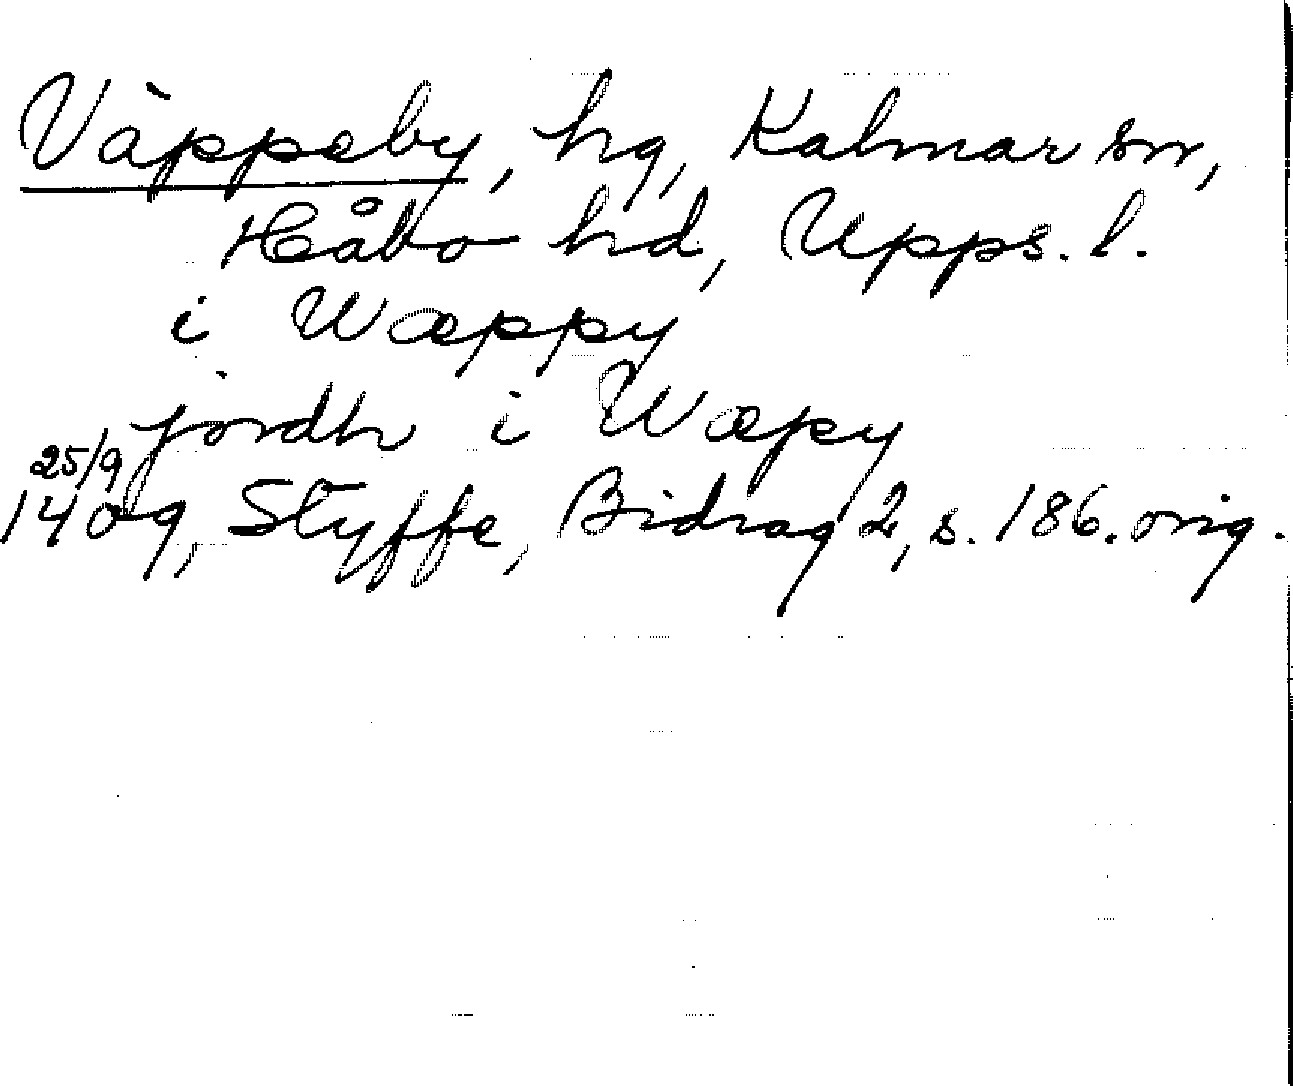 Väppeby, hg, Kalmar sn,
Håbo hd, Upps. l.
i Wæppy
jordh i Wæpy
25/9
1409, Styffe, Bidrag 2, s. 186. orig.